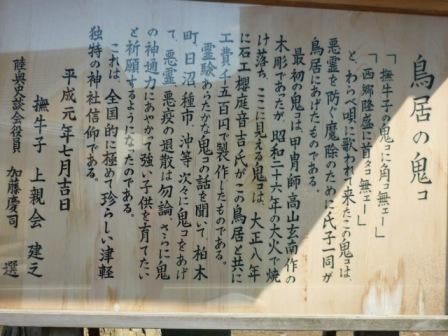 鳥居の鬼コ
「撫牛子の鬼コに角コ無ェー」
「西郷隆盛に首コ無ェー」
と、わらべ唄に歌われて来たこの鬼コは、
悪霊を防ぐ魔除のために氏子一同が
鳥居にあげたものである。
最初の鬼コは、甲冑師高山玄南作の
木彫であったが、昭和二十六年の大火で焼
け落ち、ここに見える鬼コは、大正八年
に石工櫻庭音吉氏がこの鳥居と共に
工費千五百円で製作したものである。
霊験あらたかな鬼コの話を聞いて、柏木
町、日沼、種市、沖等、次々に鬼コをあげ
て、悪霊、悪疫の退散は勿論、さらに鬼
の神通力にあやかって強い子供を育てたい
と祈願するようになったのである。
これは、全国的に極めて珍らしい津軽
独特の神社信仰である。
平成元年七月吉日
撫牛子 上親会 建之
陸奥史談会役員 加藤慶司 選